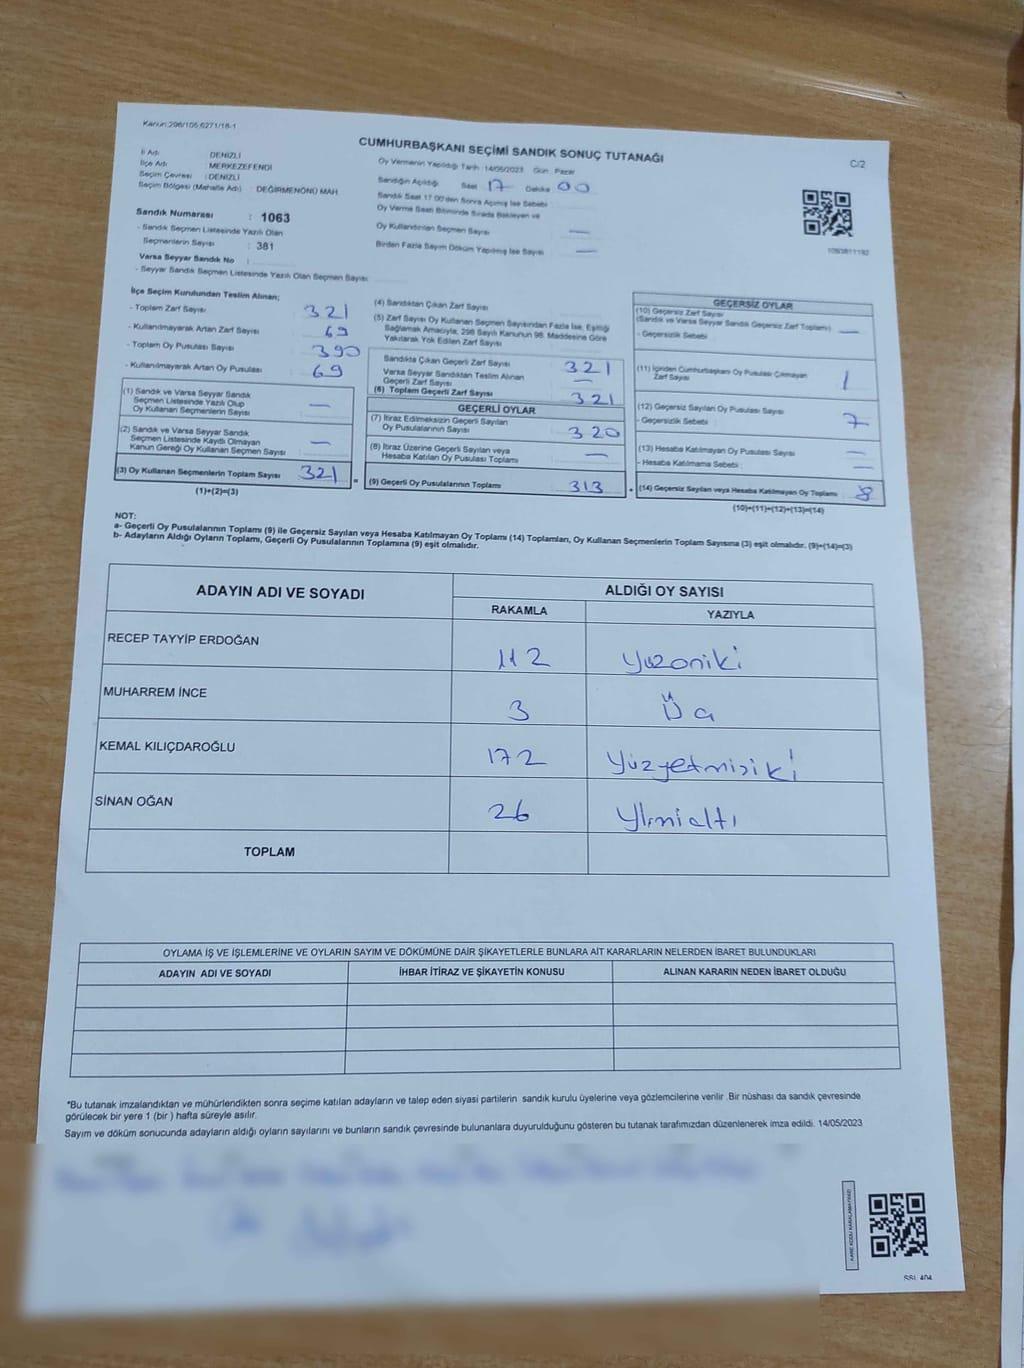 Kanun:298/105;6271/18-1
CUMHURBAŞKANI SEÇİMİ SANDIK SONUÇ TUTANAĞI
C/2
İl Adı : DENİZLİ
İlçe Adı : MERKEZEFENDİ
Seçim Çevresi : DENİZLİ
Seçim Bölgesi (Mahalle Adı) : DEĞİRMENÖNÜ MAH
Sandık Numarası : 1063
- Sandık Seçmen Listesinde Yazılı Olan
Seçmenlerin Sayısı : 381
Varsa Seyyar Sandık No :
- Seyyar Sandık Seçmen Listesinde Yazılı Olan Seçmen Sayısı:
Oy Vermenin Yapıldığı Tarih :14/05/2023 Gün : Pazar
Sandığın Açıldığı Saat 17 Dakika 00
Sandık Saat 17:00'den Sonra Açılmış İse Sebebi :
Oy Verme Saati Bitiminde Sırada Bekleyen ve
Oy Kullandırılan Seçmen Sayısı —
Birden Fazla Sayım Döküm Yapılmış İse Sayısı —
İlçe Seçim Kurulundan Teslim Alınan;
- Toplam Zarf Sayısı 321
- Kullanılmayarak Artan Zarf Sayısı 69
- Toplam Oy Pusulası Sayısı 390
- Kullanılmayarak Artan Oy Pusulası 69
(1) Sandık ve Varsa Seyyar Sandık
Seçmen Listesinde Yazılı Olup
Oy Kullanan Seçmenlerin Sayısı —
(2) Sandık ve Varsa Seyyar Sandık
Seçmen Listesinde Kayıtlı Olmayan
Kanun Gereği Oy Kullanan Seçmen Sayısı —
(3) Oy Kullanan Seçmenlerin Toplam Sayısı 321
(1)+(2)=(3)
(4) Sandıktan Çıkan Zarf Sayısı
(5) Zarf Sayısı Oy Kullanan Seçmen Sayısından Fazla İse, Eşitliği
Sağlamak Amacıyla, 298 Sayılı Kanunun 98. Maddesine Göre
Yakılarak Yok Edilen Zarf Sayısı
Sandıkta Çıkan Geçerli Zarf Sayısı 321
Varsa Seyyar Sandıktan Teslim Alınan
Geçerli Zarf Sayısı —
(6) Toplam Geçerli Zarf Sayısı 321
GEÇERLİ OYLAR
(7) İtiraz Edilmeksizin Geçerli Sayılan
Oy Pusulalarının Sayısı 320
(8) İtiraz Üzerine Geçerli Sayılan veya
Hesaba Katılan Oy Pusulası Toplamı —
(9) Geçerli Oy Pusulalarının Toplamı 313
GEÇERSİZ OYLAR
(10) Geçersiz Zarf Sayısı
(Sandık ve Varsa Seyyar Sandık Geçersiz Zarf Toplamı) —
- Geçersizlik Sebebi :
(11) İçinden Cumhurbaşkanı Oy Pusulası Çıkmayan
Zarf Sayısı 1
(12) Geçersiz Sayılan Oy Pusulası Sayısı 7
- Geçersizlik Sebebi :
(13) Hesaba Katılmayan Oy Pusulası Sayısı —
- Hesaba Katılmama Sebebi : —
(14) Geçersiz Sayılan veya Hesaba Katılmayan Oy Toplamı 8
(10)+(11)+(12)+(13)=(14)
NOT:
a- Geçerli Oy Pusulalarının Toplamı (9) ile Geçersiz Sayılan veya Hesaba Katılmayan Oy Toplamı (14) Toplamları, Oy Kullanan Seçmenlerin Toplam Sayısına (3) eşit olmalıdır. (9)+(14)=(3)
b- Adayların Aldığı Oyların Toplamı, Geçerli Oy Pusulalarının Toplamına (9) eşit olmalıdır.
ADAYIN ADI VE SOYADI ALDIĞI OY SAYISI
RAKAMLA YAZIYLA
RECEP TAYYİP ERDOĞAN 112 yüzoniki
MUHARREM İNCE 3 Üç
KEMAL KILIÇDAROĞLU 172 yüzyetmişiki
SİNAN OĞAN 26 yirmialtı
TOPLAM
OYLAMA İŞ VE İŞLEMLERİNE VE OYLARIN SAYIM VE DÖKÜMÜNE DAİR ŞİKAYETLERLE BUNLARA AİT KARARLARIN NELERDEN İBARET BULUNDUKLARI
ADAYIN ADI VE SOYADI İHBAR İTİRAZ VE ŞİKAYETİN KONUSU ALINAN KARARIN NEDEN İBARET OLDUĞU
*Bu tutanak imzalandıktan ve mühürlendikten sonra seçime katılan adayların ve talep eden siyasi partilerin sandık kurulu üyelerine veya gözlemcilerine verilir .Bir nüshası da sandık çevresinde
görülecek bir yere 1 (bir ) hafta süreyle asılır.
Sayım ve döküm sonucunda adayların aldığı oyların sayılarını ve bunların sandık çevresinde bulunanlara duyurulduğunu gösteren bu tutanak tarafımızdan düzenlenerek imza edildi. 14/05/2023